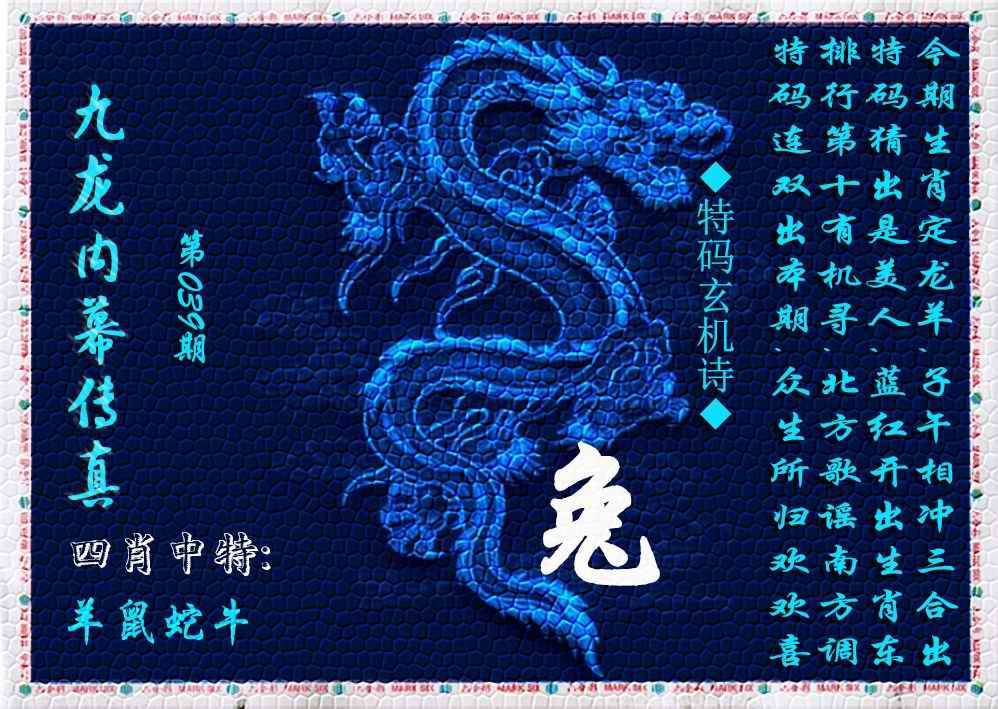 九龙内幕传真
第039期
四肖中特:
羊鼠蛇牛
兔
◆特码玄机诗◆
今期生肖定龙羊、子午相冲三合出
特码猜出是美人、蓝红开出生肖东
排行第十有机寻、北方歌谣南方调
特码连双出本期、众生所归欢欢喜